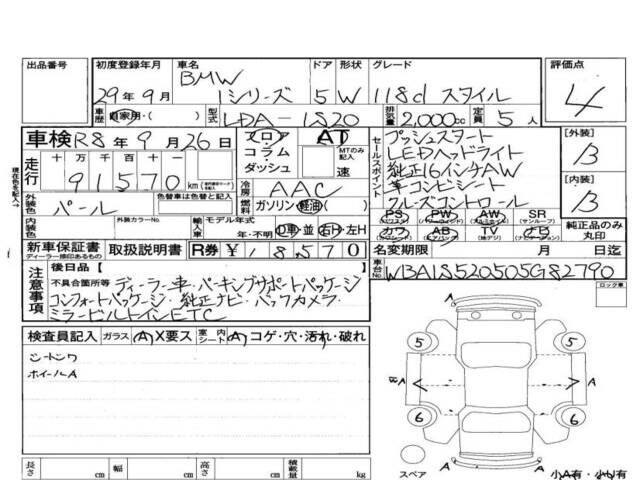 出品番号
初度登録年月
29年 9月
車名
BMW
1シリーズ
ドア 形状
5 W
グレード
118d スタイル
評価点
4
車歴 自家用・( )
型式 LDA-1S20
排気量 2,000cc
定員 5人
車検 R8年 9月 26日
フロア・コラム・ダッシュ
AT
MTのみ記入
速
走行
十 万 千 百 十 一
91570 km
冷房 AAC
燃料 ガソリン・軽油・( )
セールスポイント
プッシュスタート
LEDヘッドライト
純正16インチAW
半コンビシート
クルーズコントロール
[外装]
B
[内装]
B
外装色 パール
色替車は色替と記入
内装色
外装カラーNo.
輸入車
モデル年式
年・不明
D車・並 右H・左H
PS PW AW SR
カワ AB TV ナビ
純正品のみ丸印
新車保証書
ディーラー捺印あるもの
取扱説明書
R券 ¥18570
名変期限 月 日迄
車台No. WBA1S520505G82790
注意事項
後日品( )
不具合箇所等 ディーラー車・パーキングサポートパッケージ
コンフォートパッケージ・純正ナビ・バックカメラ
ミラービルトインETC
ロック車
検査員記入 ガラス (A)X要ス 室内シート (A)コゲ・穴・汚れ・破れ
シートシワ
ホイールA
A
5 5
A A
6 6
A
スペア
小A有・小U有
長さ cm 幅 cm 高さ cm 積載量 kg
現在色を記入→